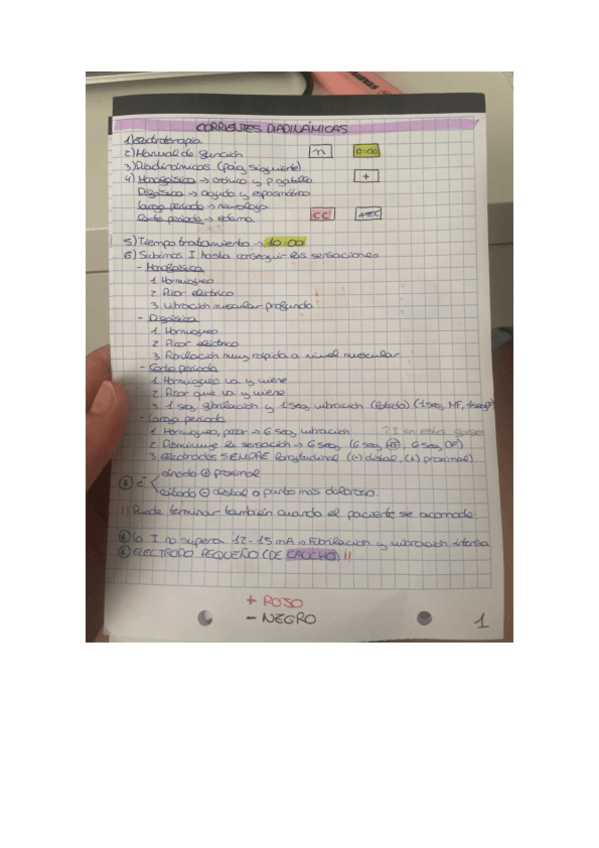 CORRIENTES DIADINÁMICAS
1) Electroterapia
2) Manual de función n 0:00
3) Diadinámicas (pág siguiente) +
4) Monofásica → crónico y
Difásica → agudo y espasmódico
Largo periodo → neurología
Corto periodo → edema CC
5) Tiempo tratamiento → 10:00
6) Subimos I hasta conseguir las sensaciones
- Monofásica
1. Hormigueo
2. Picor eléctrico
3. Vibración muscular profunda
- Difásica
1. Hormigueo
2. Picor eléctrico
3. Fibrilación muy rápida a nivel muscular
- Corto periodo
1. Hormigueo va y viene
2. Picor que va y viene
3. 1 seg, fibrilación y 1 seg, vibración (1 seg, MF, 1 seg DF)
- Largo periodo
1. Hormigueo, picor → 6 seg, vibración ↑ I en esta fase
2. Disminuye la sensación → 6 seg, (6 seg, MF, 6 seg, DF)
3. Electrodos SIEMPRE longitudinal (-) distal, (+) proximal)
ánodo ⊕ proximal
cátodo ⊖ distal o punto más doloroso.
!! Puede terminar también cuando el paciente se acomode.
la I no supera 12-15 mA → Fibrilación y vibración intensa
ELECTRODO PEQUEÑO (DE CAUCHO) !!
+ ROJO
- NEGRO
1